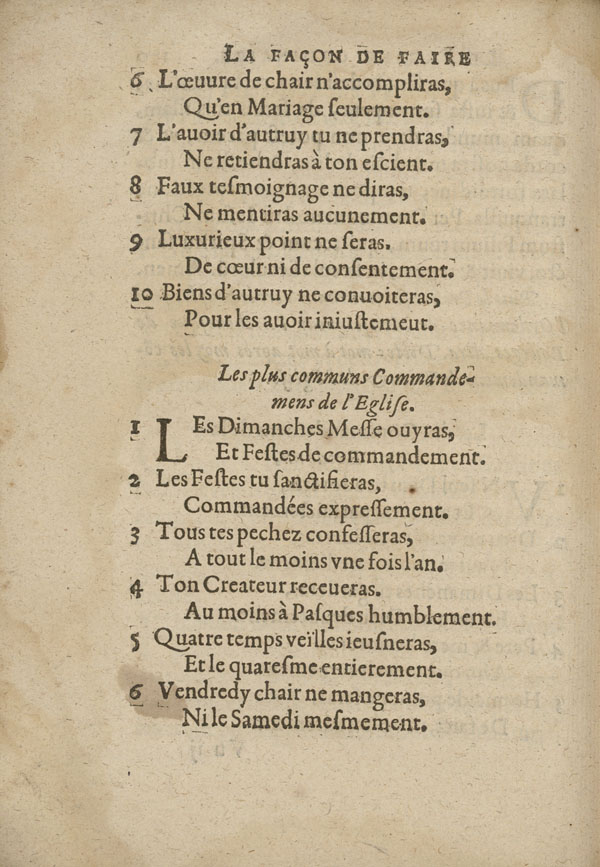 LA FAÇON DE FAIRE
6 L'œuure de chair n'accompliras,
Qu'en Mariage seulement.
7 L'auoir d'autruy tu ne prendras,
Ne retiendras à ton escient.
8 Faux tesmoignage ne diras,
Ne mentiras aucunement.
9 Luxurieux point ne seras.
De cœur ni de consentement.
10 Biens d'autruy ne conuoiteras,
Pour les auoir iniustemeut.
Les plus communs Commande-
mens de l'Eglise.
1 LEs Dimanches Messe ouyras,
Et Festes de commandement.
2 Les Festes tu sanctifieras,
Commandées expressement.
3 Tous tes pechez confesseras,
A tout le moins vne fois l'an.
4 Ton Createur receueras.
Au moins à Pasques humblement.
5 Quatre temps veïlles ieusneras,
Et le quaresme entierement.
6 Vendredy chair ne mangeras,
Ni le Samedi mesmement.